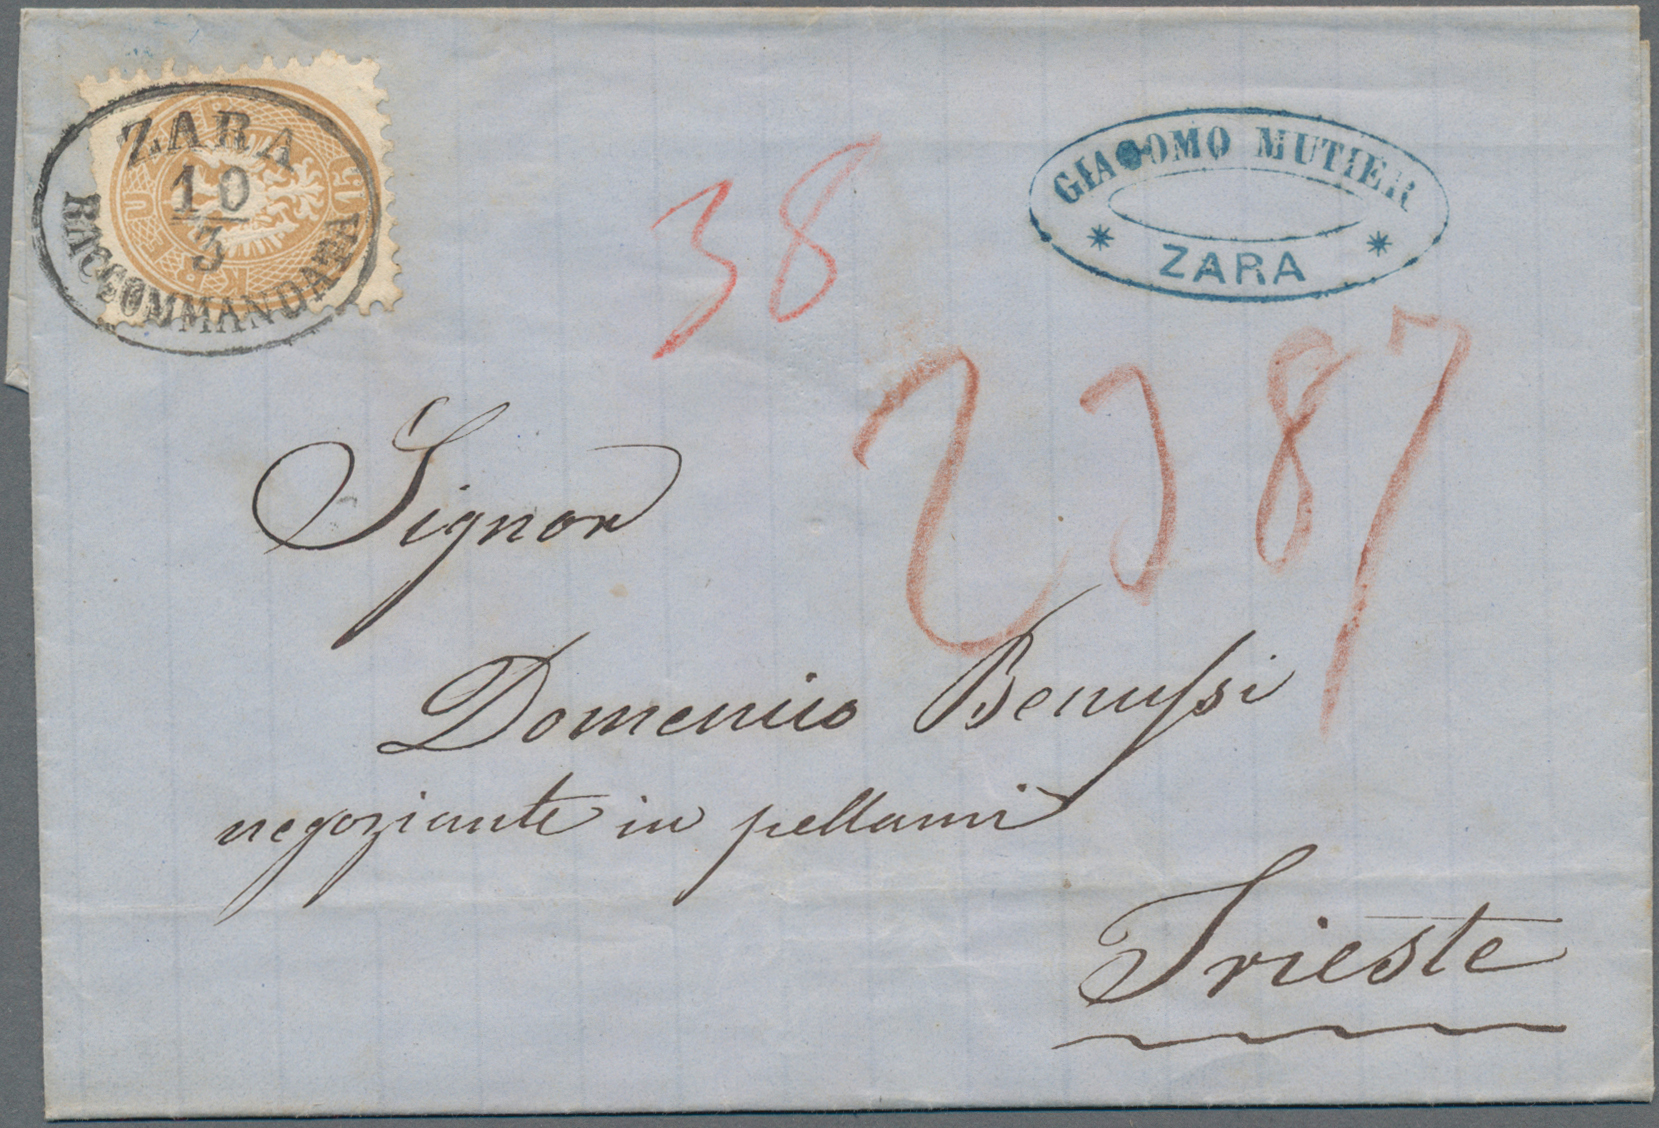 ZARA
10
3
RACCOMMANDATA
15
KREUZER
38
GIACOMO MUTIER
* ZARA *
Signor
Domenico Benussi
negoziante in pellami
Trieste